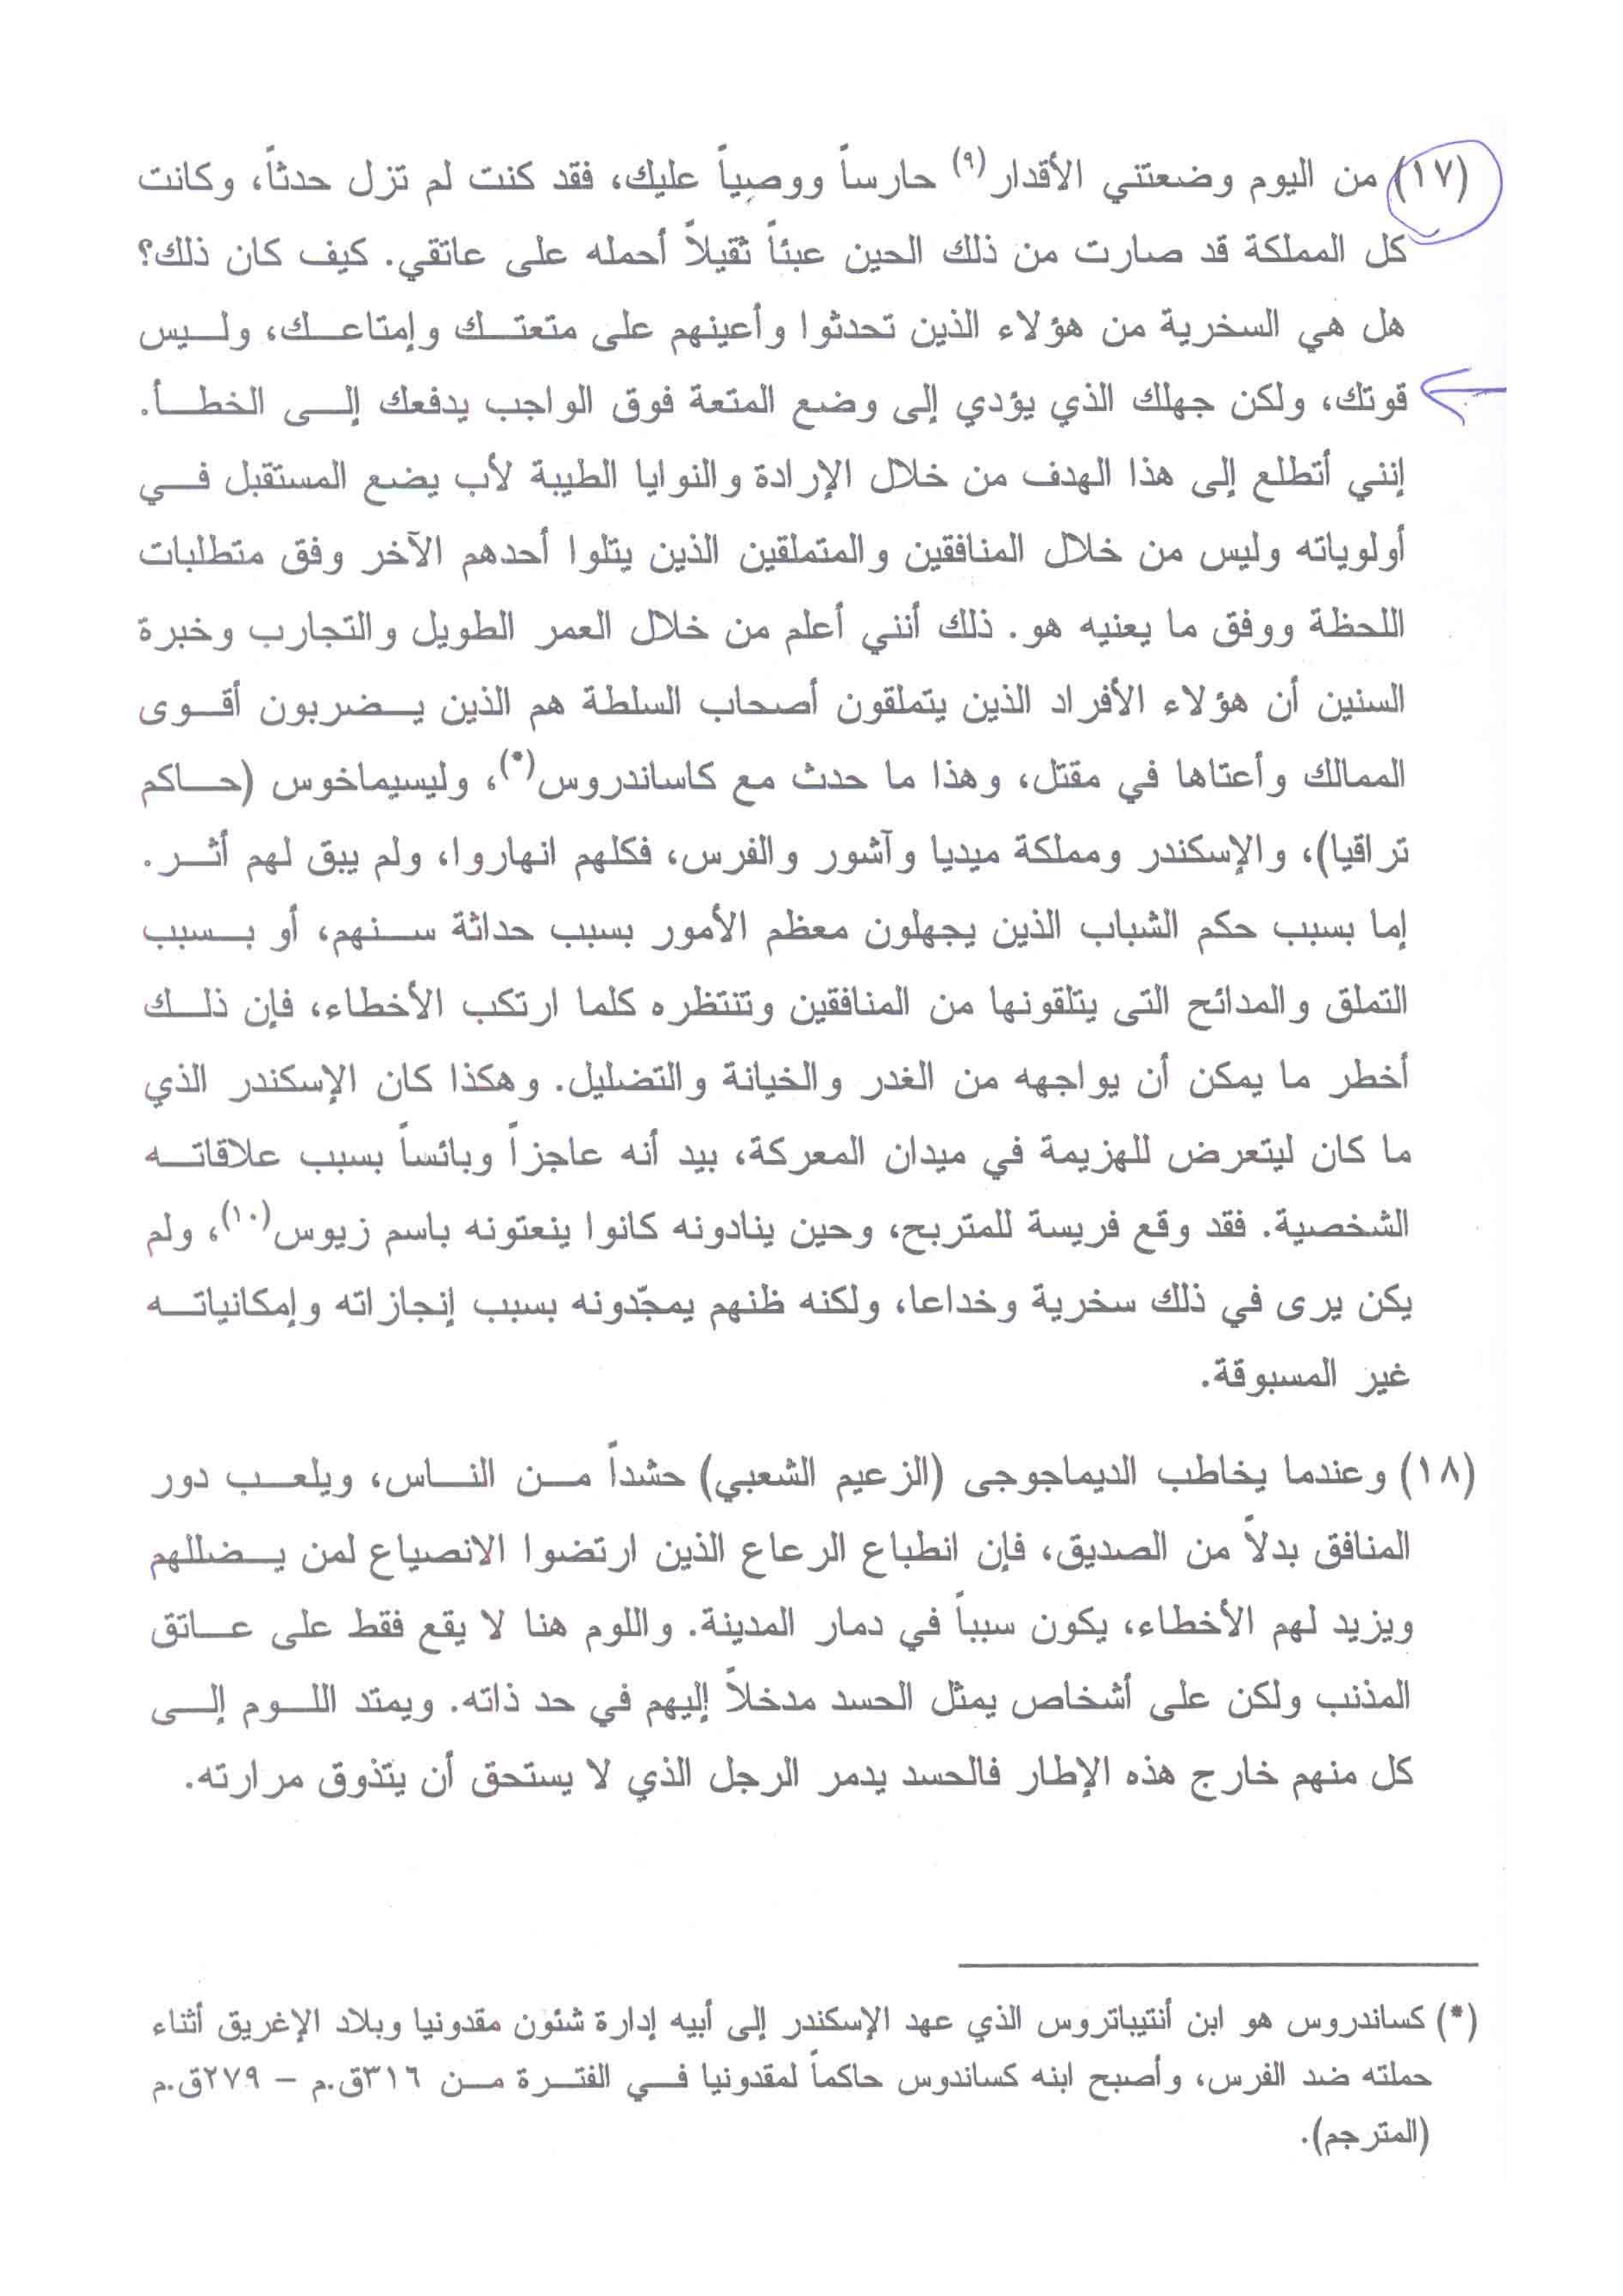 (١٧) من اليوم وضعتني الأقدار(٩) حارساً ووصياً عليك، فقد كنت لم تزل حدثاً، وكانت
كل المملكة قد صارت من ذلك الحين عبئاً ثقيلاً أحمله على عاتقي. كيف كان ذلك؟
هل هي السخرية من هؤلاء الذين تحدثوا وأعينهم على متعتك وإمتاعك، وليس
قوتك، ولكن جهلك الذي يؤدي إلى وضع المتعة فوق الواجب يدفعك إلى الخطأ.
إنني أتطلع إلى هذا الهدف من خلال الإرادة والنوايا الطيبة لأب يضع المستقبل في
أولوياته وليس من خلال المنافقين والمتملقين الذين يتلوا أحدهم الآخر وفق متطلبات
اللحظة ووفق ما يعنيه هو. ذلك أنني أعلم من خلال العمر الطويل والتجارب وخبرة
السنين أن هؤلاء الأفراد الذين يتملقون أصحاب السلطة هم الذين يضربون أقوى
الممالك وأعتاها في مقتل، وهذا ما حدث مع كاساندروس(*)، وليسيماخوس (حاكم
تراقيا)، والإسكندر ومملكة ميديا وآشور والفرس، فكلهم انهاروا، ولم يبق لهم أثر.
إما بسبب حكم الشباب الذين يجهلون معظم الأمور بسبب حداثة سنهم، أو بسبب
التملق والمدائح التى يتلقونها من المنافقين وتنتظره كلما ارتكب الأخطاء، فإن ذلك
أخطر ما يمكن أن يواجهه من الغدر والخيانة والتضليل. وهكذا كان الإسكندر الذي
ما كان ليتعرض للهزيمة في ميدان المعركة، بيد أنه عاجزاً وبائساً بسبب علاقاته
الشخصية. فقد وقع فريسة للمتربح، وحين ينادونه كانوا ينعتونه باسم زيوس(١٠)، ولم
يكن يرى في ذلك سخرية وخداعا، ولكنه ظنهم يمجّدونه بسبب إنجازاته وإمكانياته
غير المسبوقة.
(١٨) وعندما يخاطب الديماجوجى (الزعيم الشعبي) حشداً من الناس، ويلعب دور
المنافق بدلاً من الصديق، فإن انطباع الرعاع الذين ارتضوا الانصياع لمن يضللهم
ويزيد لهم الأخطاء، يكون سبباً في دمار المدينة. واللوم هنا لا يقع فقط على عاتق
المذنب ولكن على أشخاص يمثل الحسد مدخلاً إليهم في حد ذاته. ويمتد اللوم إلى
كل منهم خارج هذه الإطار فالحسد يدمر الرجل الذي لا يستحق أن يتذوق مرارته.
(*) كساندروس هو ابن أنتيباتروس الذي عهد الإسكندر إلى أبيه إدارة شئون مقدونيا وبلاد الإغريق أثناء
حملته ضد الفرس، وأصبح ابنه كساندوس حاكماً لمقدونيا في الفترة من ٣١٦ق.م – ٢٧٩ق.م
(المترجم).